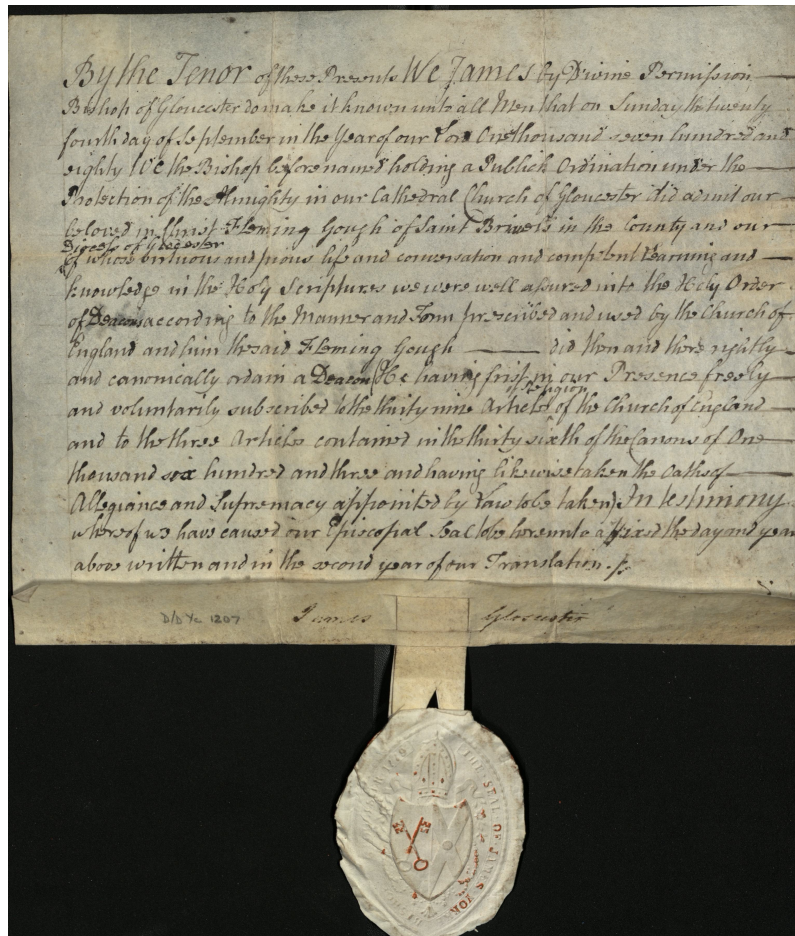 By the Tenor of these Presents We James by Divine Permission
Bishop of Gloucester do make it known unto all Men that on Sunday the twenty
fourth day of September in the Year of our Lord One thousand seven hundred and
eighty We the Bishop before named holding a Publick Ordination under the
Protection of the Almighty in our Cathedral Church of Gloucester did admit our
beloved in Christ Fleming Gough of Saint Briavels in the County and our
Diocess of Glocester
of whose virtuous and pious life and conversation and competent Learning and
knowledge in the Holy Scriptures we were well assured into the Holy Order
of Deacons according to the Manner and Form prescribed and used by the Church of
England and him the said Fleming Gough did then and there rightly
and canonically ordain a Deacon He having first in our Presence freely
of religion
and voluntarily subscribed to the thirty nine Articles of the Church of England
and to the three Articles contained in the thirty sixth of the Canons of One
thousand six hundred and three and having likewise taken the Oaths of
Allegiance and Supremacy appointed by Law to be taken) In testimony
whereof we have caused our Episcopal Seal to be hereunto affixed the day and year
above written and in the second year of our Translation.
D/D Yc 1207 James Glocester
THE SEAL OF